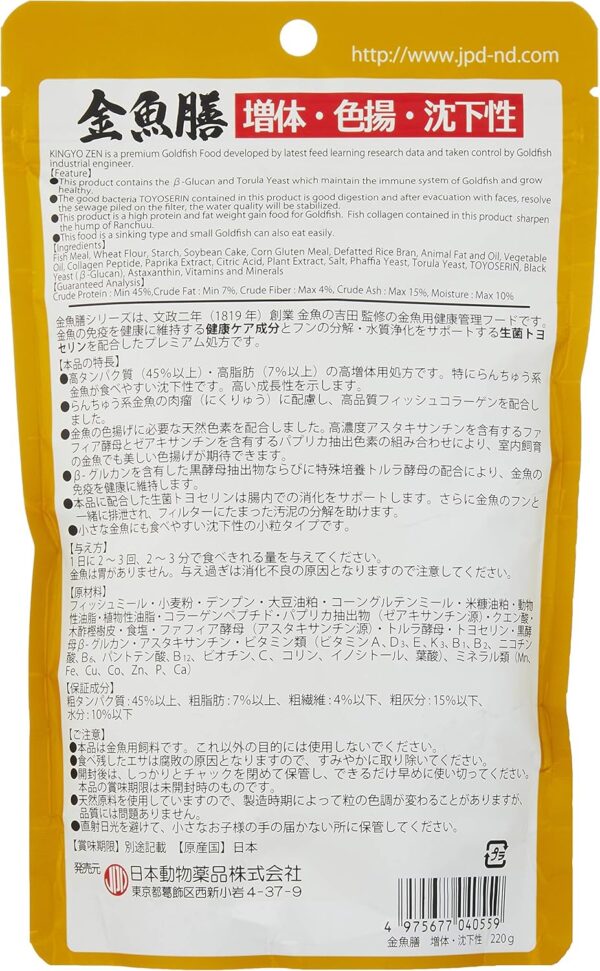 http://www.jpd-nd.com
金魚膳 増体・色揚・沈下性
KINGYO ZEN is a premium Goldfish Food developed by latest feed learning research data and taken control by Goldfish
industrial engineer.
【Feature】
●This product contains the β-Glucan and Torula Yeast which maintain the immune system of Goldfish and grow
healthy.
●The good bacteria TOYOSERIN contained in this product is good digestion and after evacuation with faces, resolve
the sewage piled on the filter, the water quality will be stabilized.
●This product is a high protein and fat weight gain food for Goldfish. Fish collagen contained in this product sharpen
the hump of Ranchuu.
●This food is a sinking type and small Goldfish can also eat easily.
【Ingredients】
Fish Meal, Wheat Flour, Starch, Soybean Cake, Corn Gluten Meal, Defatted Rice Bran, Animal Fat and Oil, Vegetable
Oil, Collagen Peptide, Paprika Extract, Citric Acid, Plant Extract, Salt, Phaffia Yeast, Torula Yeast, TOYOSERIN, Black
Yeast (β-Glucan), Astaxanthin, Vitamins and Minerals
【Guaranteed Analysis】
Crude Protein : Min 45%, Crude Fat : Min 7%, Crude Fiber : Max 4%, Crude Ash : Max 15%, Moisture : Max 10%
金魚膳シリーズは、文政二年（1819年）創業 金魚の吉田 監修の金魚用健康管理フードです。
金魚の免疫を健康に維持する健康ケア成分とフンの分解・水質浄化をサポートする生菌トヨ
セリンを配合したプレミアム処方です。
【本品の特長】
●高タンパク質（45%以上）・高脂肪（7%以上）の高増体用処方です。特にらんちゅう系
金魚が食べやすい沈下性です。高い成長性を示します。
●らんちゅう系金魚の肉瘤（にくりゅう）に配慮し、高品質フィッシュコラーゲンを配合し
ました。
●金魚の色揚げに必要な天然色素を配合しました。高濃度アスタキサンチンを含有するファ
フィア酵母とゼアキサンチンを含有するパプリカ抽出色素の組み合わせにより、室内飼育
の金魚でも美しい色揚げが期待できます。
●β-グルカンを含有した黒酵母抽出物ならびに特殊培養トルラ酵母の配合により、金魚の
免疫を健康に維持します。
●本品に配合した生菌トヨセリンは腸内での消化をサポートします。さらに金魚のフンと
一緒に排泄され、フィルターにたまった汚泥の分解を助けます。
●小さな金魚にも食べやすい沈下性の小粒タイプです。
【与え方】
1日に2～3回、2～3分で食べきれる量を与えてください。
金魚は胃がありません。与え過ぎは消化不良の原因となりますので注意してください。
【原材料】
フィッシュミール・小麦粉・デンプン・大豆油粕・コーングルテンミール・米糠油粕・動物
性油脂・植物性油脂・コラーゲンペプチド・パプリカ抽出物（ゼアキサンチン源）・クエン酸・
木酢樫樹皮・食塩・ファフィア酵母（アスタキサンチン源）・トルラ酵母・トヨセリン・黒酵
母β-グルカン・アスタキサンチン・ビタミン類（ビタミンA、D3、E、K3、B1、B2、ニコチン
酸、B6、パントテン酸、B12、ビオチン、C、コリン、イノシトール、葉酸）、ミネラル類（Mn、
Fe、Cu、Co、Zn、P、Ca）
【保証成分】
粗タンパク質：45%以上、粗脂肪：7%以上、粗繊維：4%以下、粗灰分：15%以下、
水分：10%以下
【ご注意】
●本品は金魚用飼料です。これ以外の目的には使用しないでください。
●食べ残したエサは腐敗の原因となりますので、すみやかに取り除いてください。
●開封後は、しっかりとチャックを閉めて保管し、できるだけ早めに使い切ってください。
本品の賞味期限は未開封時のものです。
●天然原料を使用していますので、製造時期によって粒の色調が変わることがありますが、
品質には問題ありません。
●直射日光を避けて、小さなお子様の手の届かない所に保管してください。
【賞味期限】別途記載 【原産国】日本
発売元 JPD 日本動物薬品株式会社
東京都葛飾区西新小岩4-37-9
紙
4 975677 040559
金魚膳 増体・沈下性 220g